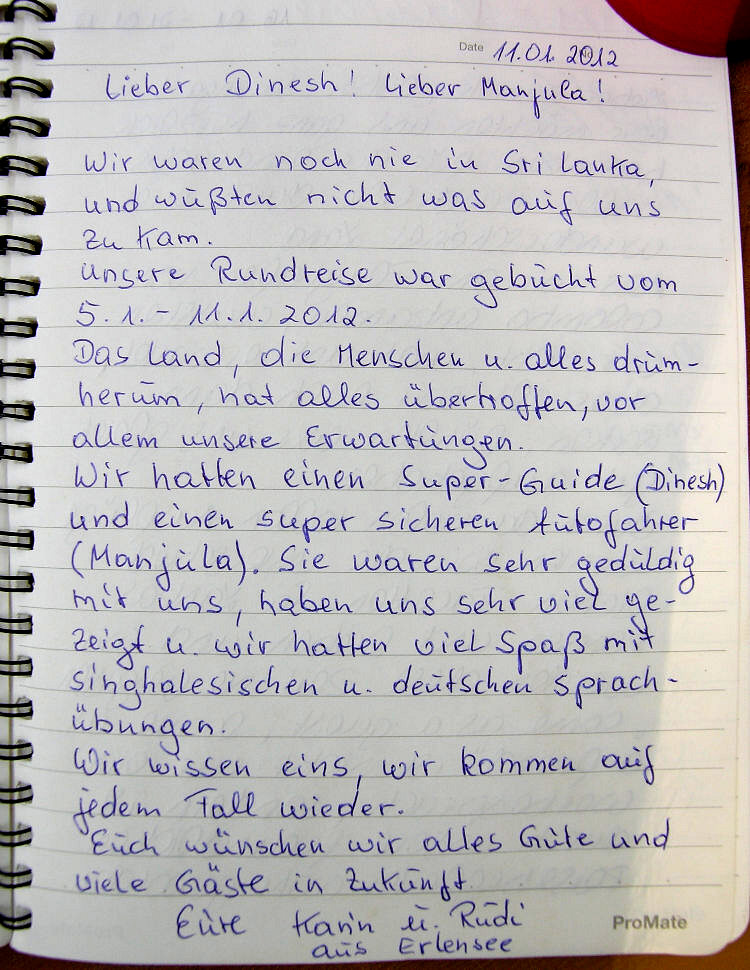 Date 11.01.2012
Lieber Dinesh! Lieber Manjula!
Wir waren noch nie in Sri Lanka,
und wußten nicht was auf uns
zu kam.
Unsere Rundreise war gebucht vom
5.1.-11.1.2012.
Das Land, die Menschen u. alles drum-
herum, hat alles übertroffen, vor
allem unsere Erwartungen.
Wir hatten einen Super-Guide (Dinesh)
und einen super sicheren Autofahrer
(Manjula). Sie waren sehr geduldig
mit uns, haben uns sehr viel ge-
zeigt u. wir hatten viel Spaß mit
singhalesischen u. deutschen Sprach-
übungen.
Wir wissen eins, wir kommen auf
jedem Fall wieder.
Euch wünschen wir alles Gute und
viele Gäste in Zukunft.
Eure Karin u. Rudi
aus Erlensee
ProMate